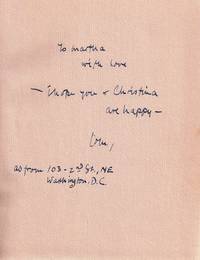 To Martha
with love
— I hope you & Christina
are happy —
Love,
as from 103 - 2nd St., NE
Washington. D.C.